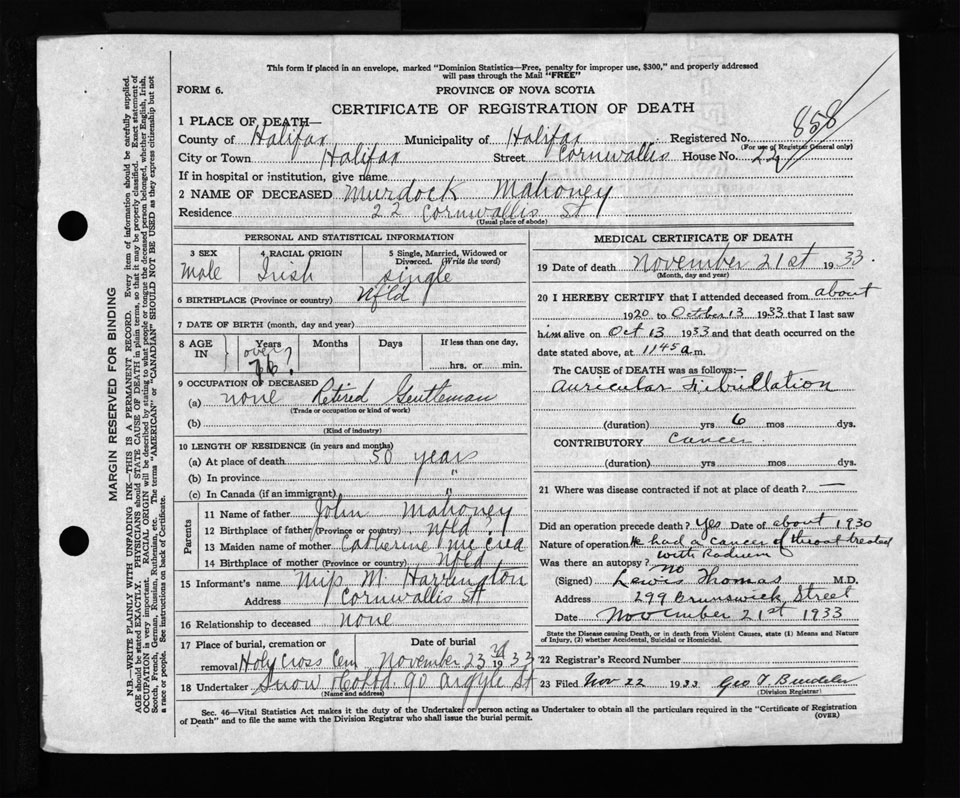 This form if placed in an envelope, marked "Dominion Statistics—Free, penalty for improper use, $300," and properly addressed
will pass through the Mail "FREE"
FORM 6.
PROVINCE OF NOVA SCOTIA
CERTIFICATE OF REGISTRATION OF DEATH
1 PLACE OF DEATH—
County of Halifax Municipality of Halifax Registered No. 858
(For use of Registrar General only)
City or Town Halifax Street Cornwallis House No. 22
If in hospital or institution, give name
2 NAME OF DECEASED Murdock Mahoney
Residence 22 Cornwallis St
(Usual place of abode)
PERSONAL AND STATISTICAL INFORMATION
3 SEX 4 RACIAL ORIGIN 5 Single, Married, Widowed or
Divorced. (Write the word)
Male Irish single
6 BIRTHPLACE (Province or country) Nfld
7 DATE OF BIRTH (month, day and year)
8 AGE IN Years Months Days If less than one day,
over 76? hrs. or min.
9 OCCUPATION OF DECEASED
(a) none Retired Gentleman
(Trade or occupation or kind of work)
(b)
(Kind of industry)
10 LENGTH OF RESIDENCE (in years and months)
(a) At place of death 50 years
(b) In province "
(c) In Canada (if an immigrant) "
Parents
11 Name of father John Mahoney
12 Birthplace of father (Province or country) Nfld ?
13 Maiden name of mother Catherine McCrea
14 Birthplace of mother (Province or country) Nfld
15 Informant's name Miss M. Harrington
Address Cornwallis St
16 Relationship to deceased none
17 Place of burial, cremation or Date of burial
removal Holy Cross Cem November 23rd 1933
18 Undertaker Snow & Co Ltd. 90 Argyle St
(Name and address)
MEDICAL CERTIFICATE OF DEATH
19 Date of death November 21st 1933.
(Month, day and year)
20 I HEREBY CERTIFY that I attended deceased from about
1920 to October 13 1933 that I last saw
him alive on Oct 13 1933 and that death occurred on the
date stated above, at 1145 a.m.
The CAUSE OF DEATH was as follows:—
Auricular Fibrillation
(duration) yrs 6 mos dys.
CONTRIBUTORY Cancer
(duration) yrs mos dys.
21 Where was disease contracted if not at place of death? —
Did an operation precede death? Yes Date of about 1930
Nature of operation He had a cancer of throat treated
with Radium
Was there an autopsy? No
(Signed) Lewis Thomas M.D.
Address 299 Brunswick Street
Date November 21st 1933
State the Disease causing Death, or in death from Violent Causes, state (1) Means and Nature
of Injury, (2) whether Accidental, Suicidal or Homicidal.
22 Registrar's Record Number
23 Filed Nov 22 1933 Geo F
(Division Registrar)
Sec. 46—Vital Statistics Act makes it the duty of the Undertaker or person acting as Undertaker to obtain all the particulars required in the "Certificate of Registration
of Death" and to file the same with the Division Registrar who shall issue the burial permit.
(OVER)
MARGIN RESERVED FOR BINDING
N.B.—WRITE PLAINLY WITH UNFADING INK—THIS IS A PERMANENT RECORD. Every item of information should be carefully supplied.
AGE should be stated EXACTLY. PHYSICIANS should STATE CAUSE OF DEATH in plain terms, so that it may be properly classified. Exact statement of
OCCUPATION is very important. RACIAL ORIGIN will be described by stating to what people or tongue the deceased person belonged, whether English, Irish,
Scotch, French, German, Russian, Ruthenian, etc. The terms "AMERICAN" or "CANADIAN" SHOULD NOT BE USED as they express citizenship but not
a race or people. See instructions on back of Certificate.